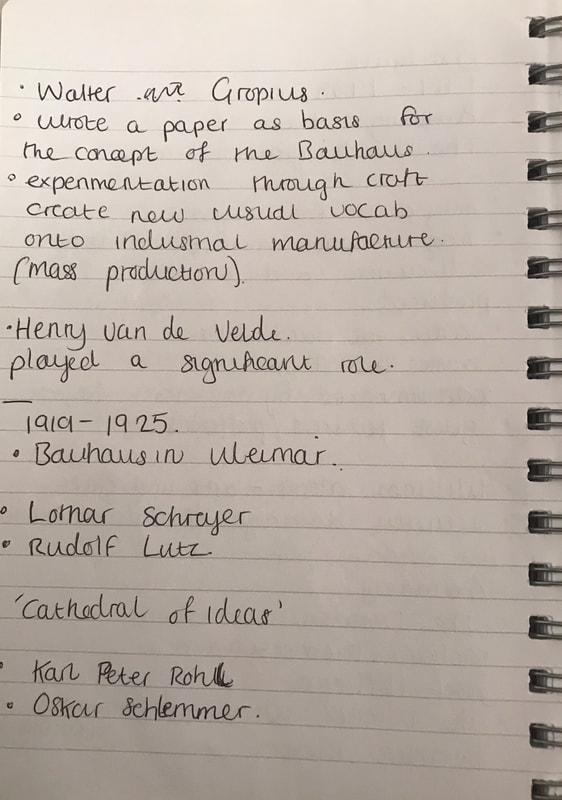 • Walter Gropius.
• wrote a paper as basis for
the concept of the Bauhaus.
• experimentation through craft
create new visual vocab
onto industrial manufacture.
(mass production).
• Henry van de Velde.
played a significant role.
1919 - 1925.
• Bauhaus in Weimar.
• Lothar Schreyer
• Rudolf Lutz
'Cathedral of ideas'
• Karl Peter Rohl
• Oskar Schlemmer.